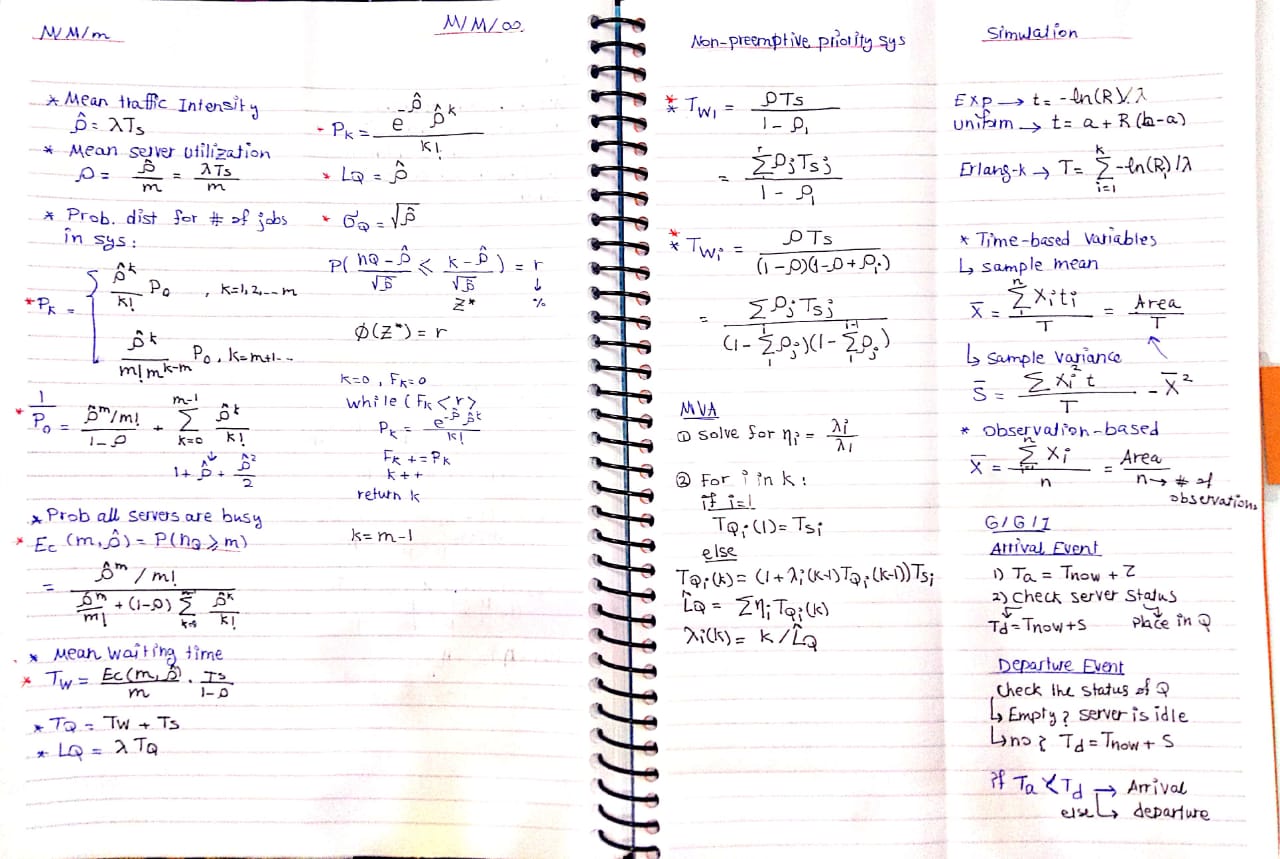 M/M/m
* Mean traffic Intensity
ρ̂ = λTs
* Mean server utilization
ρ = ρ̂/m = λTs/m
* Prob. dist for # of jobs
in sys:
* Pk = { ρ̂^k/k! P0 , k=1,2,...m
ρ̂^k/(m! m^(k-m)) P0 , k=m+1...
* 1/P0 = (ρ̂^m/m!)/(1-ρ) + Σ_{k=0}^{m-1} ρ̂^k/k!
↓
1 + ρ̂ + ρ̂²/2
* Prob all servers are busy
* Ec(m,ρ̂) = P(nQ ≥ m)
= (ρ̂^m/m!) / (ρ̂^m/m! + (1-ρ) Σ ρ̂^k/k!)
* Mean waiting time
* Tw = Ec(m,ρ̂)/m . Ts/(1-ρ)
* TQ = Tw + Ts
* LQ = λ TQ
M/M/∞
- Pk = e^(-ρ̂) ρ̂^k / k!
* LQ = ρ̂
* σQ = √ρ̂
P( (nQ - ρ̂)/√ρ̂ ≤ (k - ρ̂)/√ρ̂ ) = r
z* ↓ %
Ø(z*) = r
k=0 , Fk=0
while (Fk < r)
Pk = e^(-ρ̂) ρ̂^k / k!
Fk += Pk
k++
return k
k = m-1
Non-preemptive priority sys
** Tw1 = ρTs / (1-ρ1)
= Σ_1^r ρj Tsj / (1-ρ1)
** Twi = ρTs / ((1-ρ)(1-ρ+ρi))
= Σ ρj Tsj / ((1-Σ_1^i ρj)(1-Σ_1^{i-1} ρj))
MVA
① solve for ηi = λi/λ1
② For i in k:
if i=1
TQi(1) = Tsi
else
TQi(k) = (1+λi(k-1)TQi(k-1))Tsi
L̂Q = Σηi TQi(k)
λi(k) = k/L̂Q
Simulation
Exp → t = -ln(R)/λ
uniform → t = a + R(b-a)
Erlang-k → T = Σ_{i=1}^k -ln(Ri)/λ
* Time-based variables
↳ sample mean
X̄ = Σ^n Xi ti / T = Area/T
↳ sample variance
S̄ = Σ Xi² t / T - X̄²
* observation-based
X̄ = Σ^n Xi / n = Area / n → # of
observations
G/G/1
Arrival Event
1) Ta = Tnow + τ
2) check server status
Td = Tnow + S place in Q
Departure Event
Check the status of Q
↳ Empty? server is idle
↳ no? Td = Tnow + S
if Ta < Td → Arrival
else ↳ departure